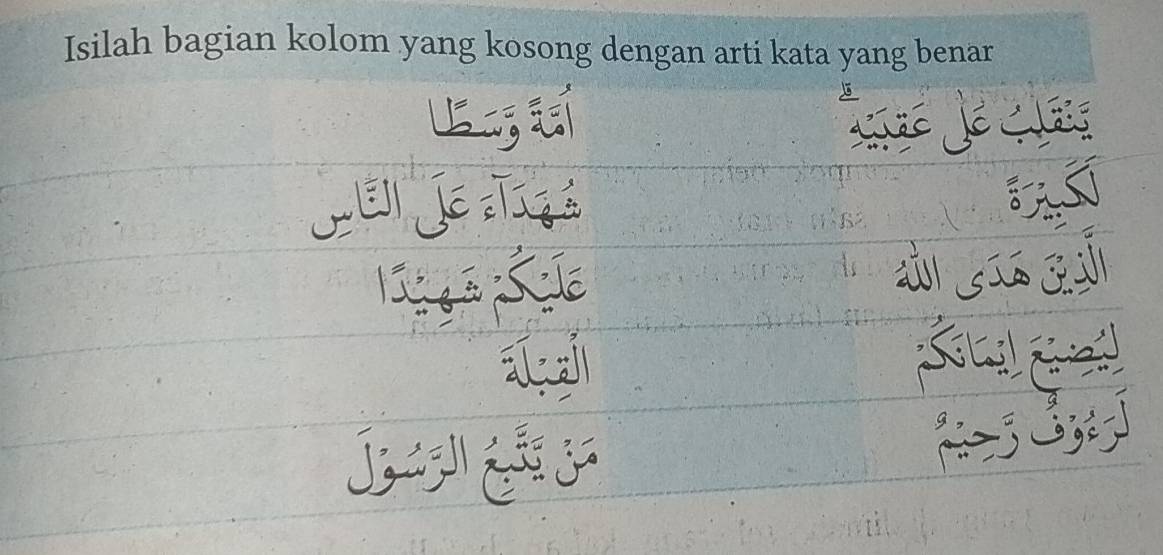 Isilah bagian kolom yang kosong dengan arti kata yang benar
يَّنْقَلِبُ عَلٰى عَقِبَيْهِۗ
اُمَّةً وَّسَطًا
لَكَبِيْرَةً
شُهَدَاۤءَ عَلَى النَّاسِ
الَّذِيْنَ هَدَى اللّٰهُ
عَلَيْكُمْ شَهِيْدًا
لِيُضِيْعَ اِيْمَانَكُمْ
الْقِبْلَةَ
لَرَءُوْفٌ رَّحِيْمٌ
مَنْ يَّتَّبِعُ الرَّسُوْلَ